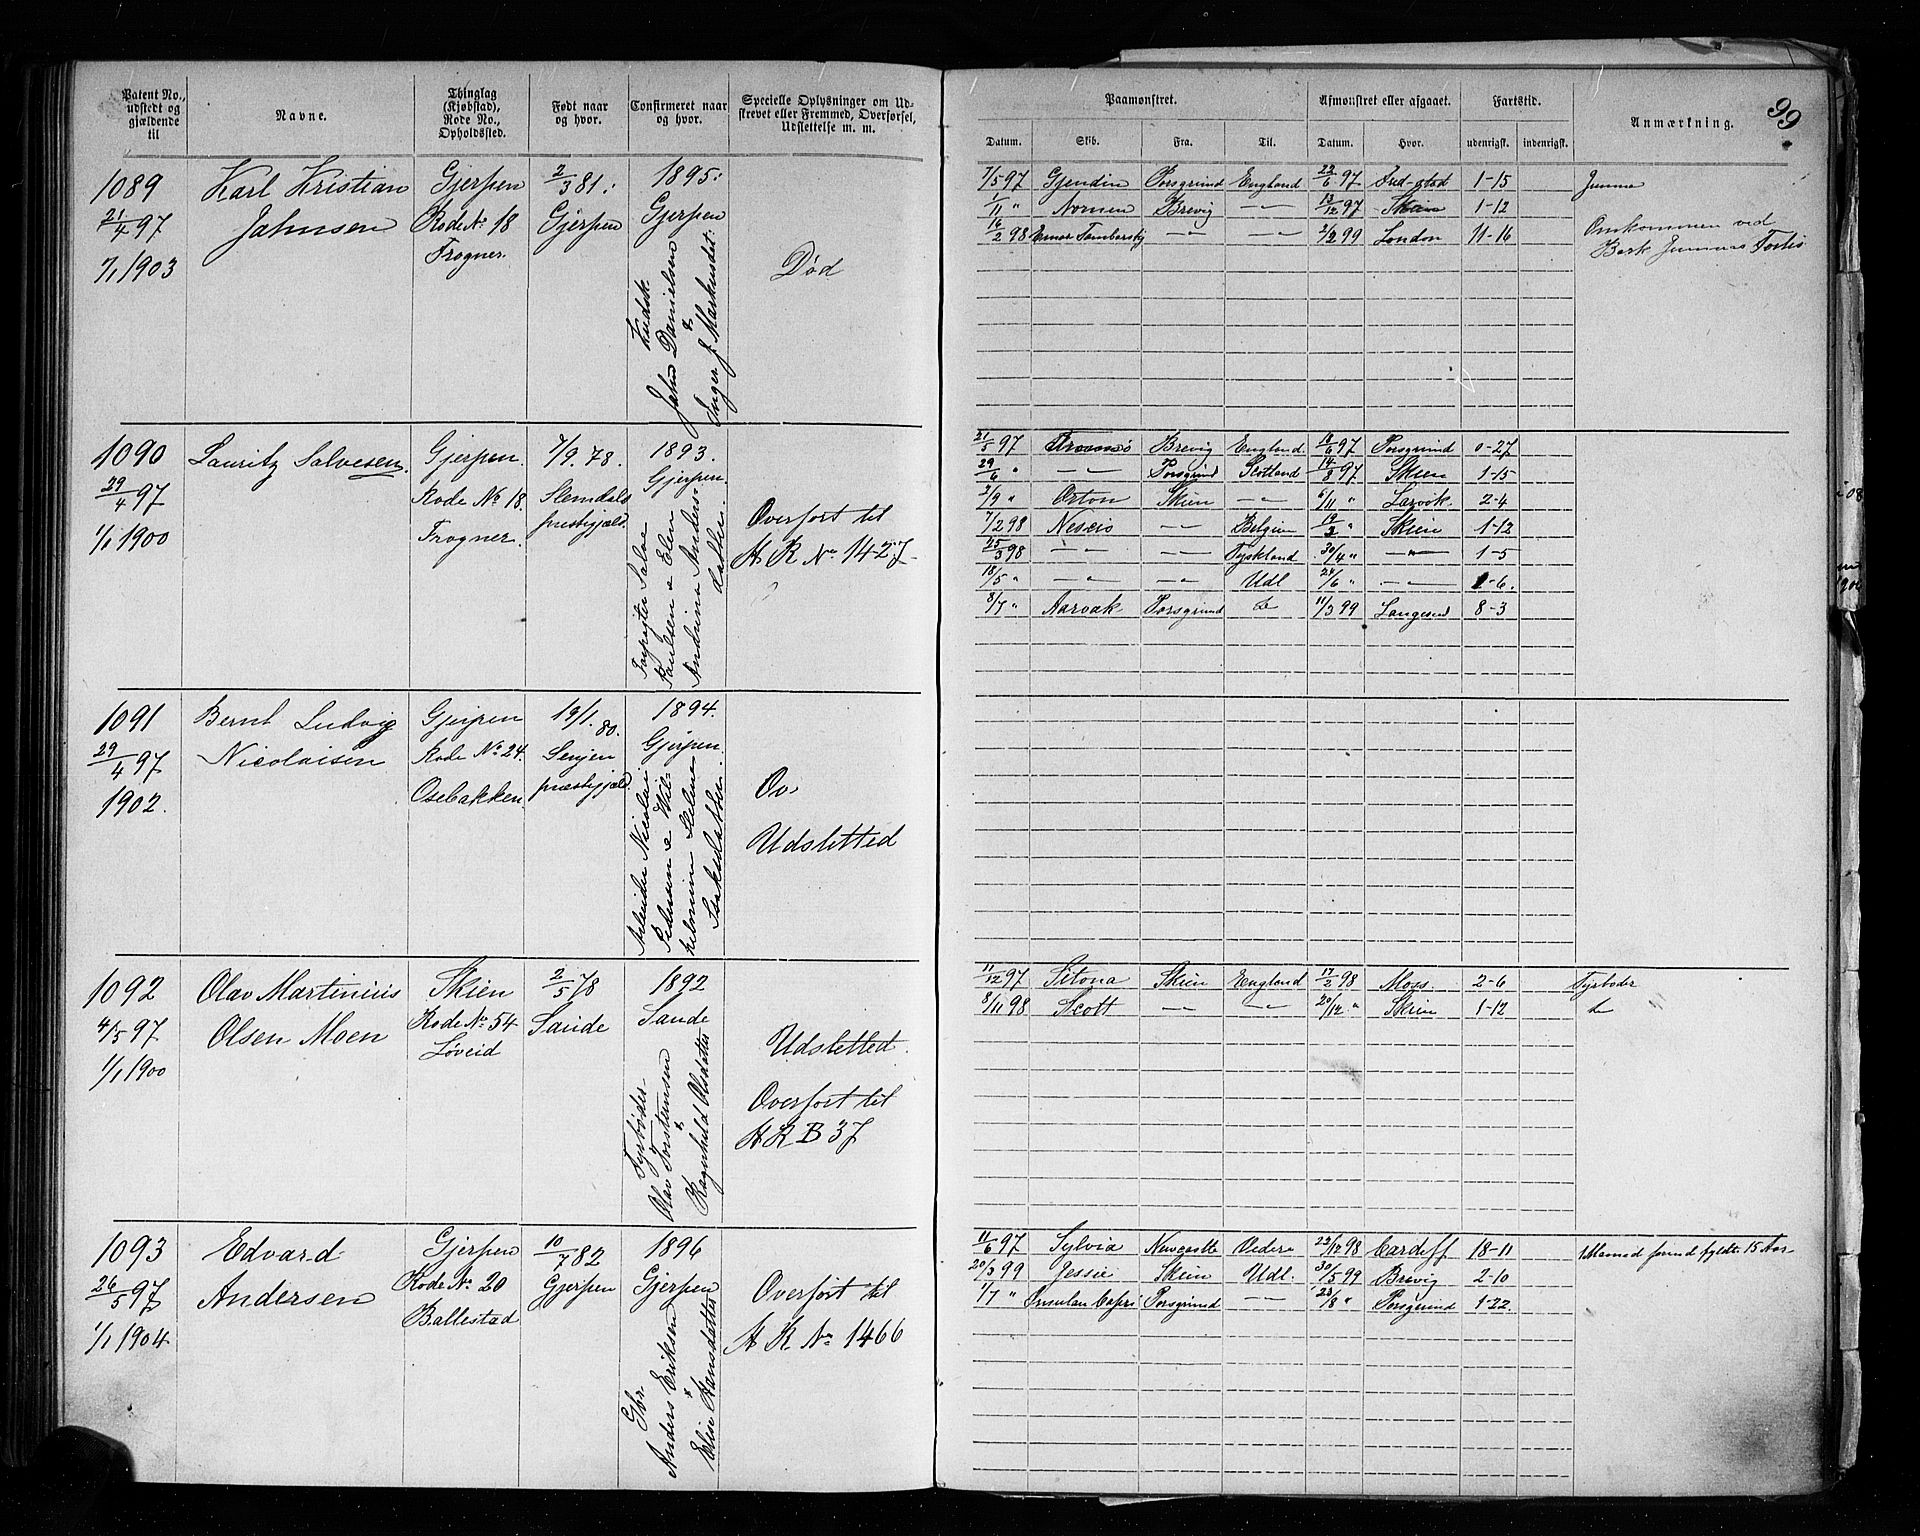 99
Patent No., udstedt og gjældende til
Navne.
Thinglag (Kjøbstad), Rode No., Opholdssted.
Født naar og hvor.
Confirmeret naar og hvor.
Specielle Oplysninger om Udskrevet eller Fremmed, Overførsel, Udslettelse m. m.
Paamønstret.
Afmønstret eller afgaaet.
Fartstid.
Anmærkning.
Datum. Skib. Fra. Til. Datum. Hvor. udenrigst. indenrigst.
1089
21/4 97
1/1 1903
Karl Kristian
Jahnsen
Gjerpen
Rode No 18
Frogner.
2/3 81:
Gjerpen
1895:
Gjerpen
Kudsk
Jahn Danielsen
&
Inger J. Markusdat:
Død
7/5 97 Gjendin Porsgrund England 22/6 97 1-15
1/11 " Nornen Brevig —"— 13/12 97 Skien 1-12
16/2 98 —"— —"— 2/2 99 London 11-16
Omkommen ved
Bark Forlis
1090
29/4 97
1/1 1900
Lauritz Salvesen.
Gjerpen.
Rode No 18.
Frogner.
7/9. 78.
Slemdals
prestigjæld.
1893.
Gjerpen.
Salve
Paulsen & Elen
Andrina Anders
datter.
Overført til
H R No 1427
21/5 97 Tromsø Brevig England. 18/6 97 Porsgrund 0-27
29/6 " —"— Porsgrund Skotland 14/8 97 Skien 1-15
2/9 " Orton Skien —"— 6/11 " Larvik. 2-4
7/2 98 —"— Belgien 19/3 " Skien 1-12
25/3 98 —"— —"— Tyskland 30/4 " —"— 1-5
18/5 " —"— —"— Udl 24/6 " —"— 1-6.
8/7 " Aarvak Porsgrund 11/3 99 Langesund 8-3
1091
29/4 97
1902.
Bernt Ludvig
Nicolaisen
Gjerpen
Rode No 24.
Osebakken.
19/1. 80.
Senjen
præstigjæld.
1894.
Gjerpen.
Arbeider Nicolai
Pedersen & Wil-
helmine Helene
Isaksdatter.
Ov.
Udsletted
1092
4/5 97
1/1 1900
Olav Martinius
Olsen Moen
Skien
Rode No 54
Løveid
2/5 78
Sande
1892
Sande
Fyrbøder
Olav Torstensen
&
Ragnhild Olsdatter
Udslettet.
Overført til
H R B 37
11/12 97 Sitona Skien England 17/2 98 Moss 2-6 Fyrbøder
8/11 98 Scott —"— 20/12 " Skien 1-12
1093
26/5 97
1/1 1904
Edvard
Andersen
Gjerpen
Rode No 20
Ballestad
10/7 82
Gjerpen
1896
Gjerpen
Gbr.
Anders Eriksen
&
Elise Hansdatter
Overført til
H R No 1466
11/6 97 Sylvia Newcastle 22/12 98 Cardiff 18-11 1 Maaned forud fyldte 15 Aar
20/3 99 Jessie Skien Udl. 30/5 99 Brevig 2-10
1/7 " Porsgrund —"— 23/8 " Porsgrund 1-22.